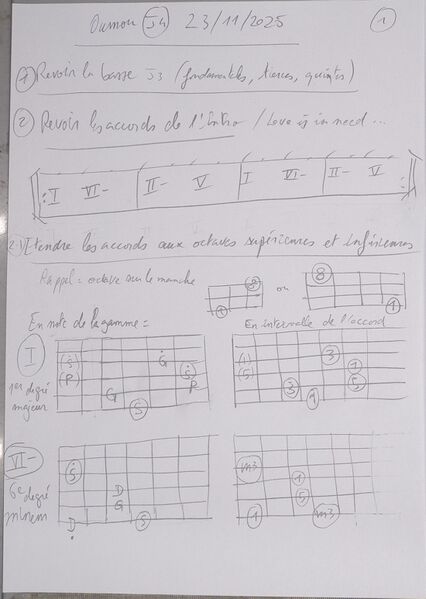 Oumou J4 23/11/2025 1
1 Revoir la basse J3 (fondamentales, tierces, quintes)
2 Revoir les accords de l'Intro / Love is in need ...
I VI- II- V I VI- II- V
2) Etendre les accords aux octaves supérieures et inférieures
Rappel = octave sur le manche
8 1 ou 8 1
En note de la gamme =
En intervalle de l'accord
I
1er degré
majeur
S (P) G S G S P
(1) (5) 3 1 3 1 5
VI-
6e degré
mineur
S D D G S
m3 1 1 5 m3